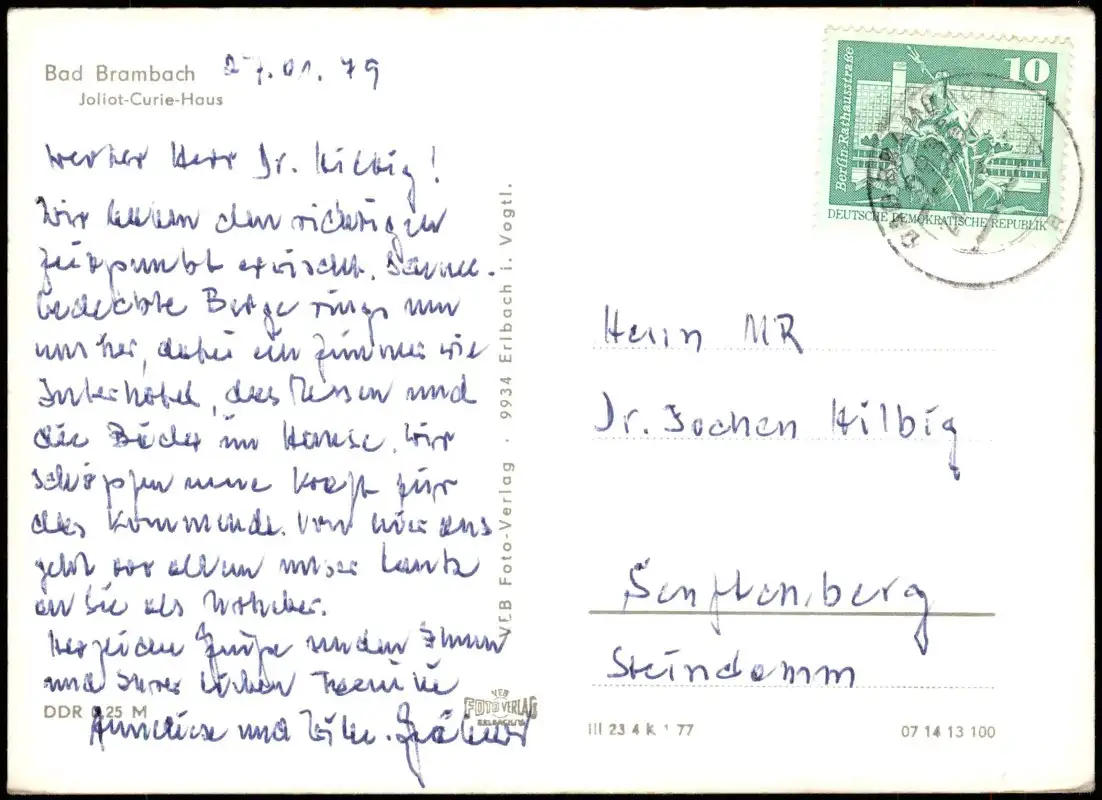 Bad Brambach 27.01.79
Joliot-Curie-Haus
Werter Herr Dr. Hilbig!
Wir haben den richtigen
Zeitpunkt erwischt. Schnee-
bedeckte Berge rings um
uns her, dabei ein Zimmer wie
Interhotel, das Essen und
die Bäder im Hause. Wir
schöpfen neue Kraft für
das Kommende. Von hier aus
geht vor allem unser Dank
an Sie als
Herzliche Grüße senden Ihnen
und Ihrer lieben Familie
Anneliese und
DDR 0,25 M
VEB Foto-Verlag · 9934 Erlbach i. Vogtl.
VEB
FOTO VERLAG
ERLBACH/V.
10
Berlin-Rathausstraße
DEUTSCHE DEMOKRATISCHE REPUBLIK
BAD BRAMBACH
Herrn MR
Dr. Jochen Hilbig
Senftenberg
Steindamm
III 23 4 k 1 77
07 14 13 100